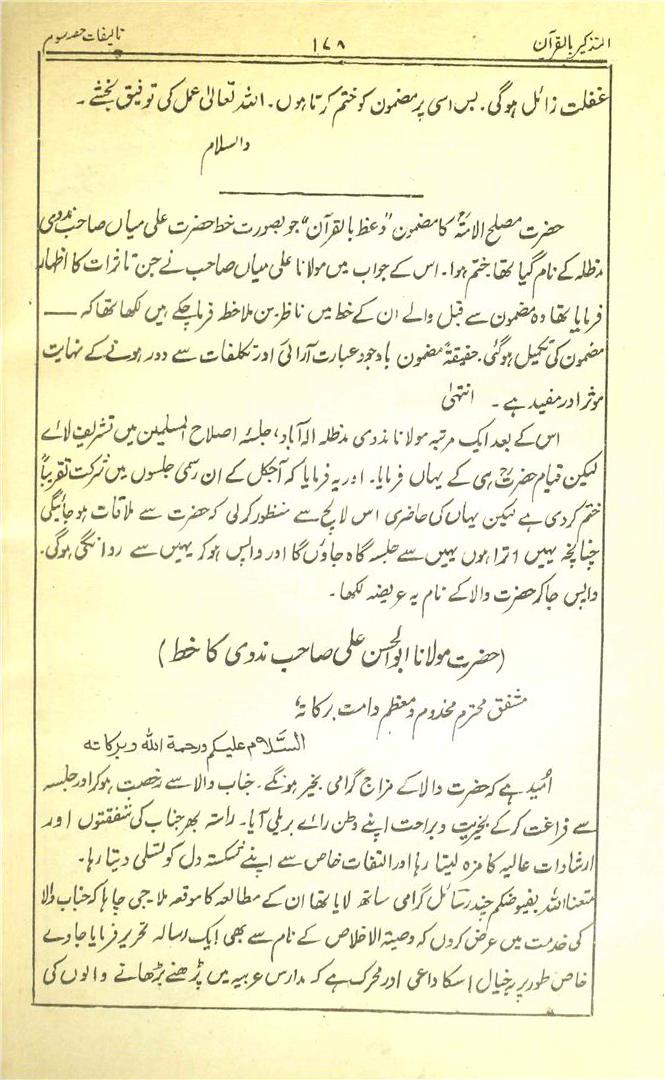 التذکیر بالقرآن ۱۷۸ تالیفات حصہ سوم
غفلت زائل ہوگی۔ بس اسی پر مضمون کو ختم کرتا ہوں۔ اللہ تعالیٰ عمل کی توفیق بخشے۔
والسلام
حضرت مصلح الامۃؒ کا مضمون "وعظ بالقرآن" جو بصورت خط حضرت علی میاں صاحب ندوی
مدظلہ کے نام گیا تھا ختم ہوا۔ اس کے جواب میں مولانا علی میاں صاحب نے جن تاثرات کا اظہار
فرمایا تھا وہ مضمون سے قبل والے ان کے خط میں ناظرین ملاحظہ فرما چکے ہیں لکھا تھا کہ ——
مضمون کی تکمیل ہوگئی۔ حقیقۃً مضمون باوجود عبارت آرائی اور تکلفات سے دور ہونے کے نہایت
موثر اور مفید ہے۔ انتہیٰ
اس کے بعد ایک مرتبہ مولانا ندوی مدظلہ الہ آباد، جلسۂ اصلاح المسلمین میں تشریف لائے
لیکن قیام حضرتؒ ہی کے یہاں فرمایا۔ اور یہ فرمایا کہ آجکل کے ان رسمی جلسوں میں شرکت تقریباً
ختم کردی ہے لیکن یہاں کی حاضری اس لالچ سے منظور کرلی کہ حضرت سے ملاقات ہوجائیگی
چنانچہ یہیں اترا ہوں یہیں سے جلسہ گاہ جاؤں گا اور واپس ہوکر یہیں سے روانگی ہوگی۔
واپس جاکر حضرت والا کے نام یہ عریضہ لکھا۔
(حضرت مولانا ابوالحسن علی صاحب ندوی کا خط)
مشفق محترم مخدوم و معظم دامت برکاتہ،
السلام علیکم ورحمۃ اللہ وبرکاتہ
امید ہے کہ حضرت والا کے مزاج گرامی بخیر ہونگے۔ جناب والا سے رخصت ہوکر اور جلسہ
سے فراغت کرکے بخیریت و براحت اپنے وطن رائے بریلی آیا۔ راستہ بھر جناب کی شفقتوں اور
ارشادات عالیہ کا مزہ لیتا رہا اور التفات خاص سے اپنے شکستہ دل کو تسلی دیتا رہا۔
متعنا اللہ بفیوضکم چند رسائل گرامی ساتھ لایا تھا ان کے مطالعہ کا موقعہ ملا جی چاہا کہ جناب والا
کی خدمت میں عرض کروں کہ وصیۃ الاخلاص کے نام سے بھی ایک رسالہ تحریر فرمایا جاوے
خاص طور پر یہ خیال اسکا داعی اور محرک ہے کہ مدارس عربیہ میں پڑھنے پڑھانے والوں کی